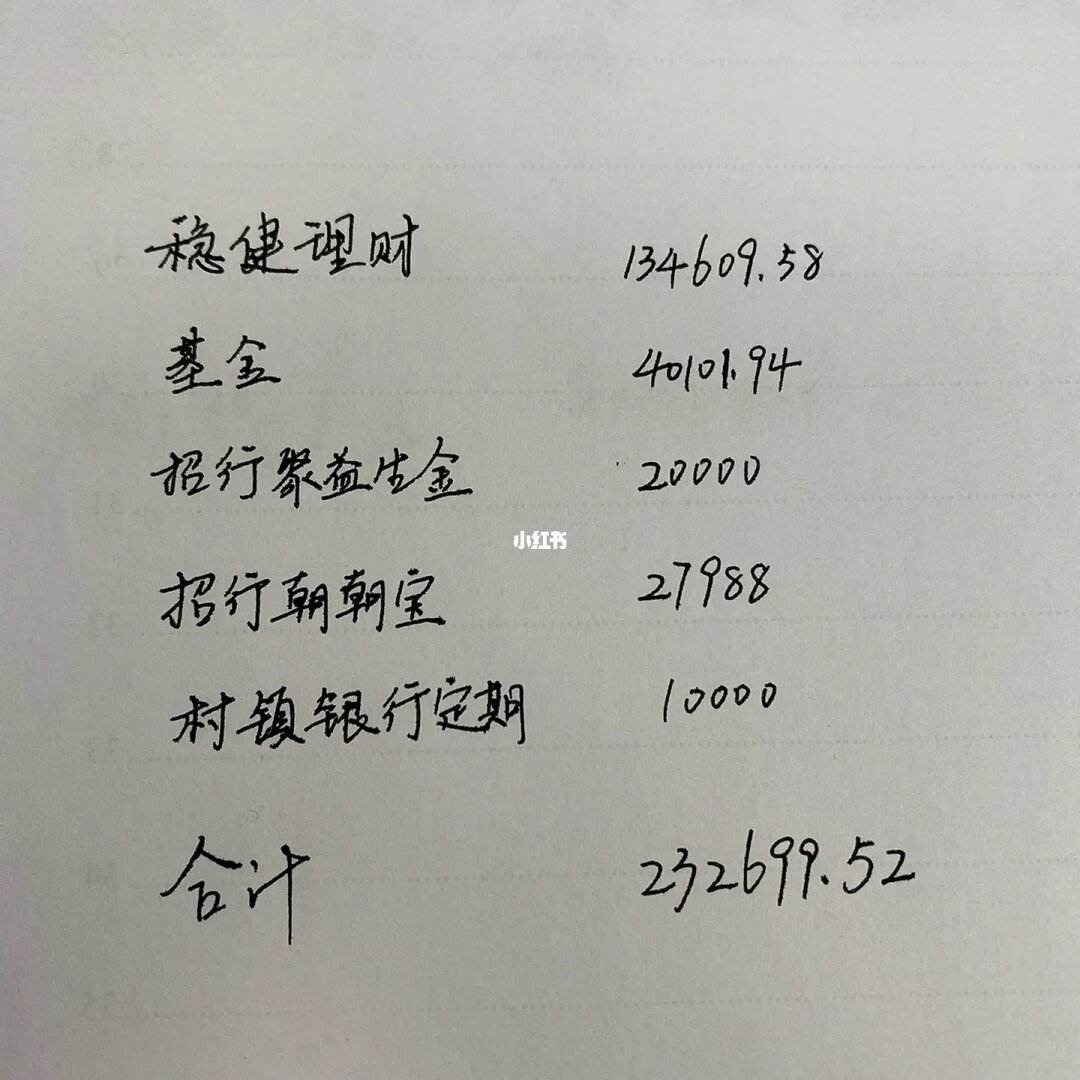 稳健理财 134609.58
基金 40101.94
招行聚益生金 20000
小红书
招行朝朝宝 27988
村镇银行定期 10000
合计 232699.52